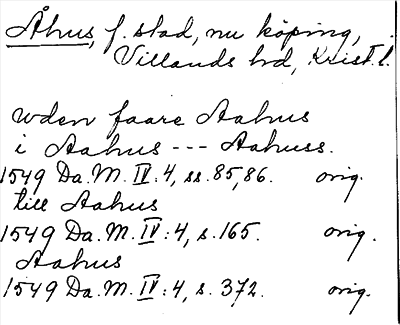 Åhus, f. stad, nu köping,
Villands hd, Krist. l.
uden faare Aahus
i Aahus --- Aahuss.
1549 Da. M. IV: 4, ss. 85,86. orig.
till Aahus
1549 Da. M. IV: 4, s. 165. orig.
Aahus
1549 Da. M. IV: 4, s. 372. orig.